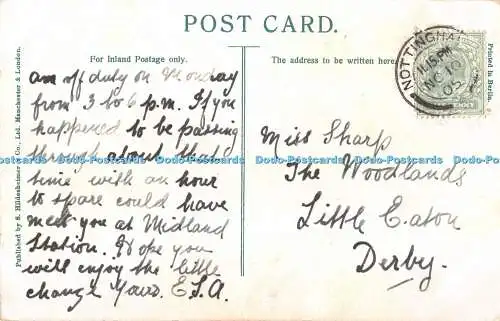 POST CARD.
For Inland Postage only.
The address to be written here.
Published by S. Hildesheimer & Co., Ltd. Manchester & London.
Printed in Berlin.
NOTTINGHA
PM
am off duty on Monday
from 3 to 6 p.m. If you
happened to be passing
through about that
time with an hour
to spare could have
meet you at Midland
Station. Hope you
will enjoy the little
change Yours. E.S.A.
Miss Sharp
The Woodlands
Little Eaton
Derby.
Do-Postcards Do-Postcards Do-Postcards Do-Postcards